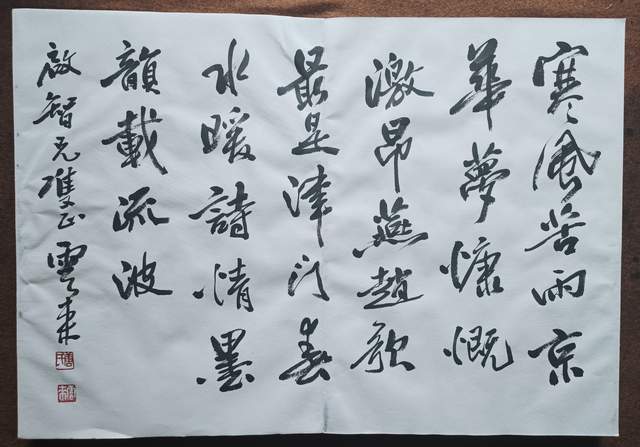 寒風苦雨京
華夢慷慨
激昂燕趙歌
最是津门春
水暖詩情墨
韻載流波
啟智兄雙正雲來